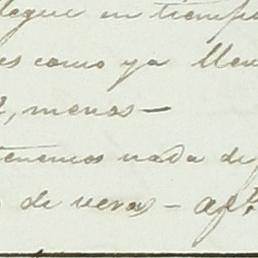 llegue en tiempo
es como ya lleve
, menos —
tenemos nada de
de veras — af.